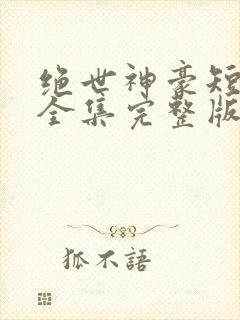 绝世神豪短
全集完整版
狐不語